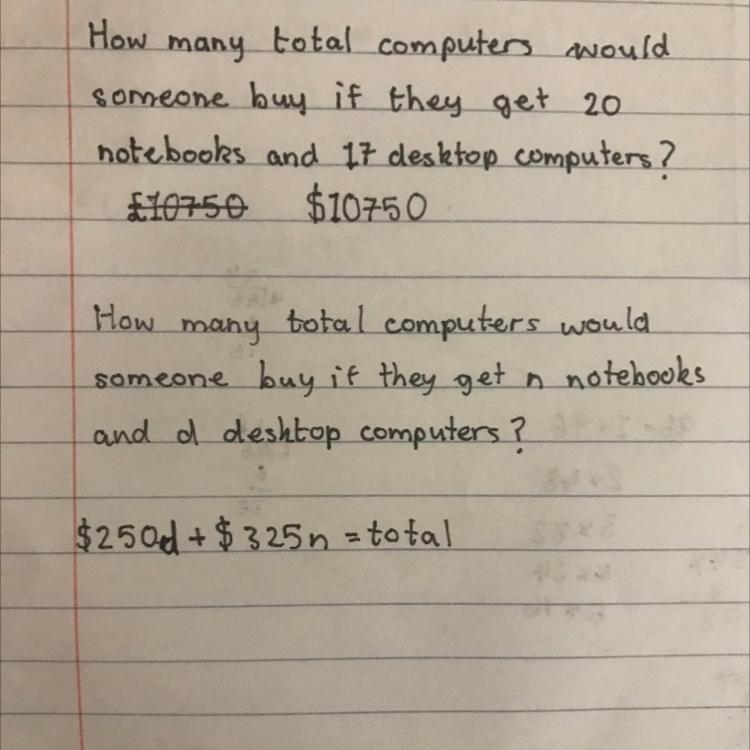 How many total computers would
someone buy if they get 20
notebooks and 17 desktop computers?
£10750 $10750
How many total computers would
someone buy if they get n notebooks
and d desktop computers?
$250d + $325n = total